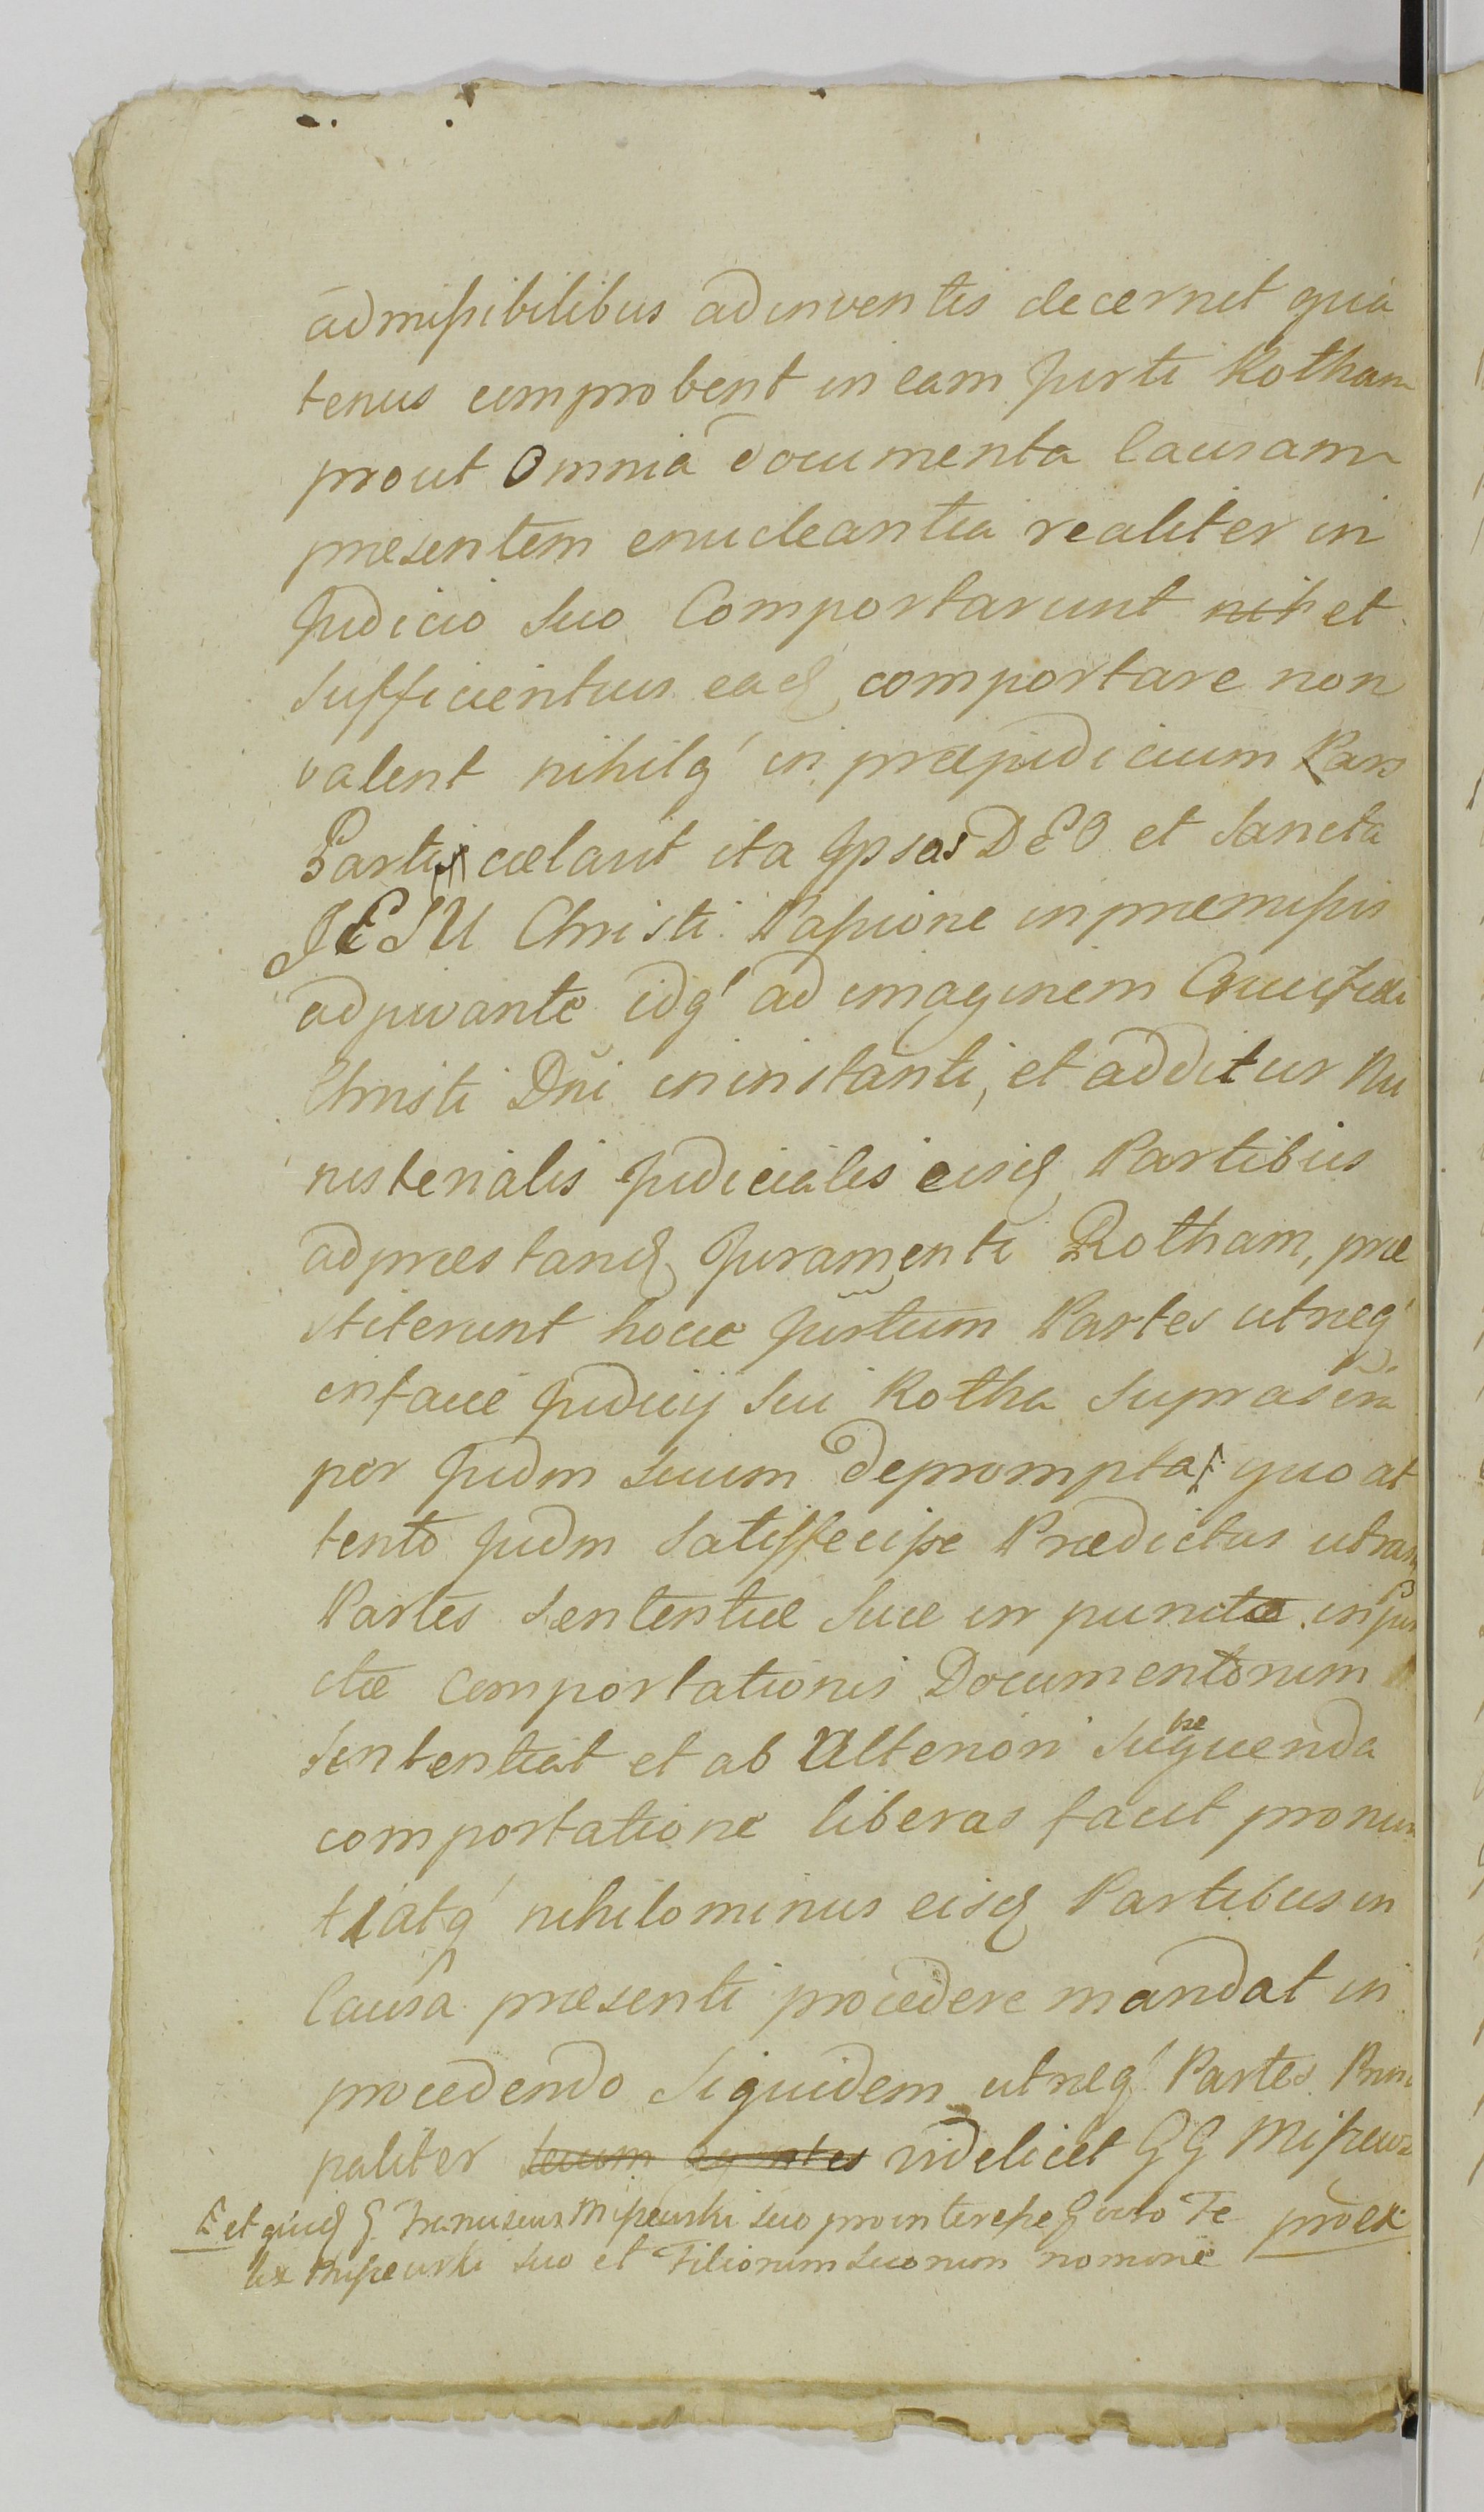 admissibilibus adinventis decernit qua
tenus comprobent in eam Jurti Rotham
prout Omnia documenta Causam
præsentem enucleantia realiter in
Judicio suo Comportarunt et
sufficientius ead comportare non
valent nihilq' in præjudicium Pars
Partis cælarit ita Ipsos DEO et Sancta
JESU Christi Passione in præmissis
adjuvante idq' ad imaginem Crucifixi
Christi Dni in instanti, et additur Mi
nisterialis Judicialis eisd Partibus
ad præstand Juramenti Rotham, præ
stiterunt hocce Jurtum Partes utræq'
in facie Judicij sui Rotha supra
per Judm suum deprompta quo at
tento Judm satisfecisse Prædictas utras
Partes sententiæ suæ in puncto injun
ctæ comportationis Documentorum
sententiat et ab Ulteriori subsequenda
comportatione liberas facit pronun
tiatq' nihilominus eisd Partibus in
Causa præsenti procedere mandat in
procedendo siquidem utræq' Partes Prin
paliter videlicet GG Miszews
et G. Franciscus Miszewski suo pro interesse Fe
lix Miszewski suo et Filiorum suorum nomine